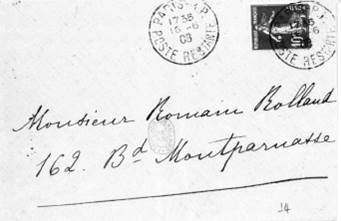 PARIS
17 35
15 -6
08
POSTE RESTANTE
10
POSTE RESTANTE
Monsieur Romain Rolland
162. Bd Montparnasse
14